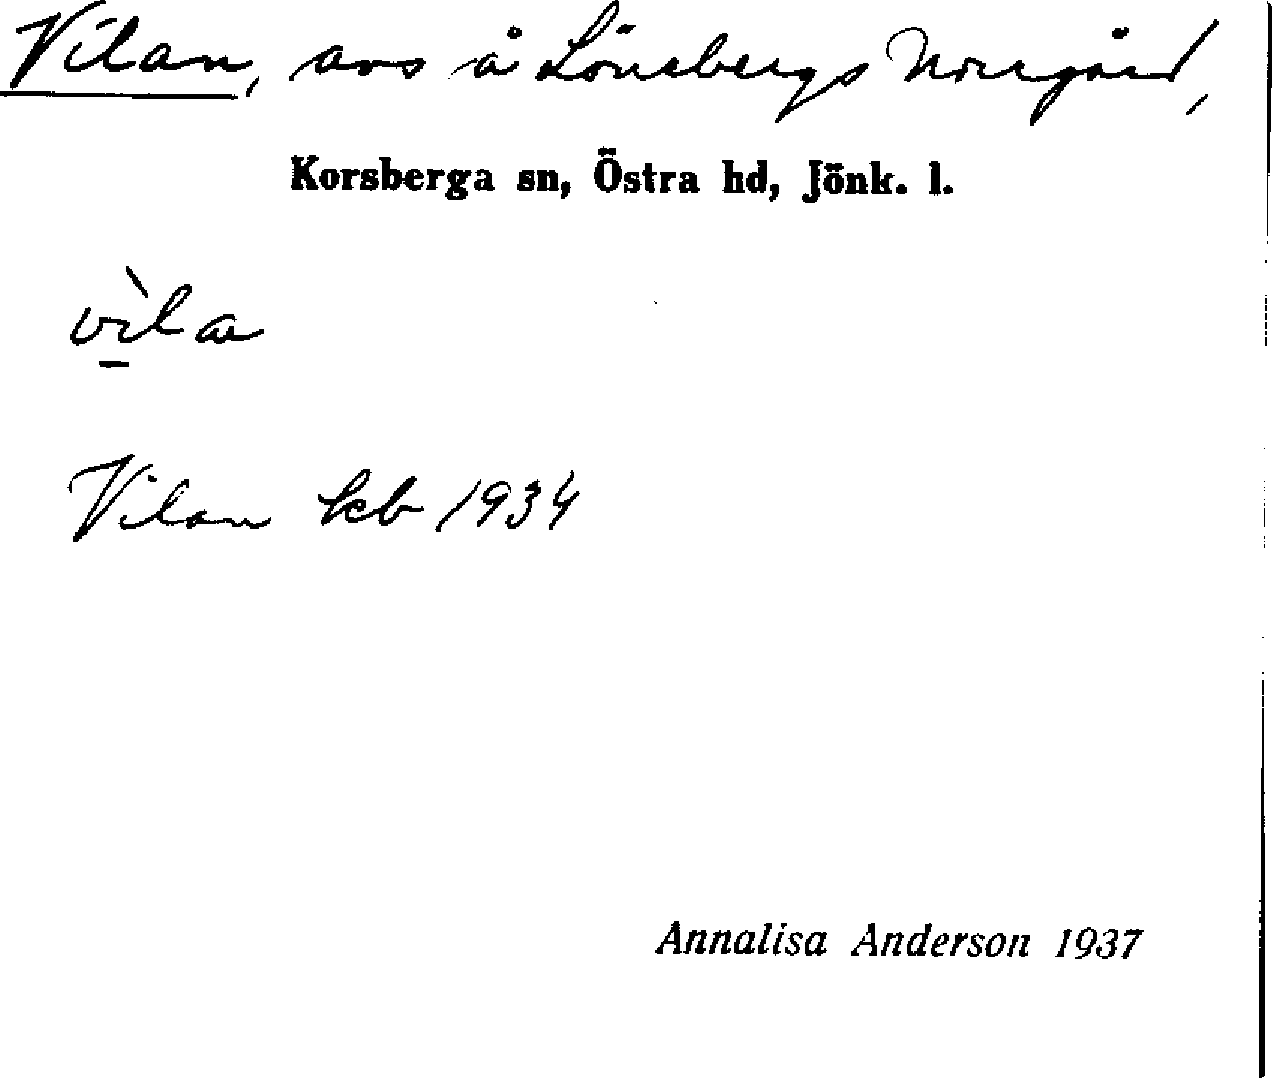 Vilan, avs å Lönebergs Norrgård,
Korsberga sn, Östra hd, Jönk. l.
vìla
Vilan kb 1934
Annalisa Anderson 1937